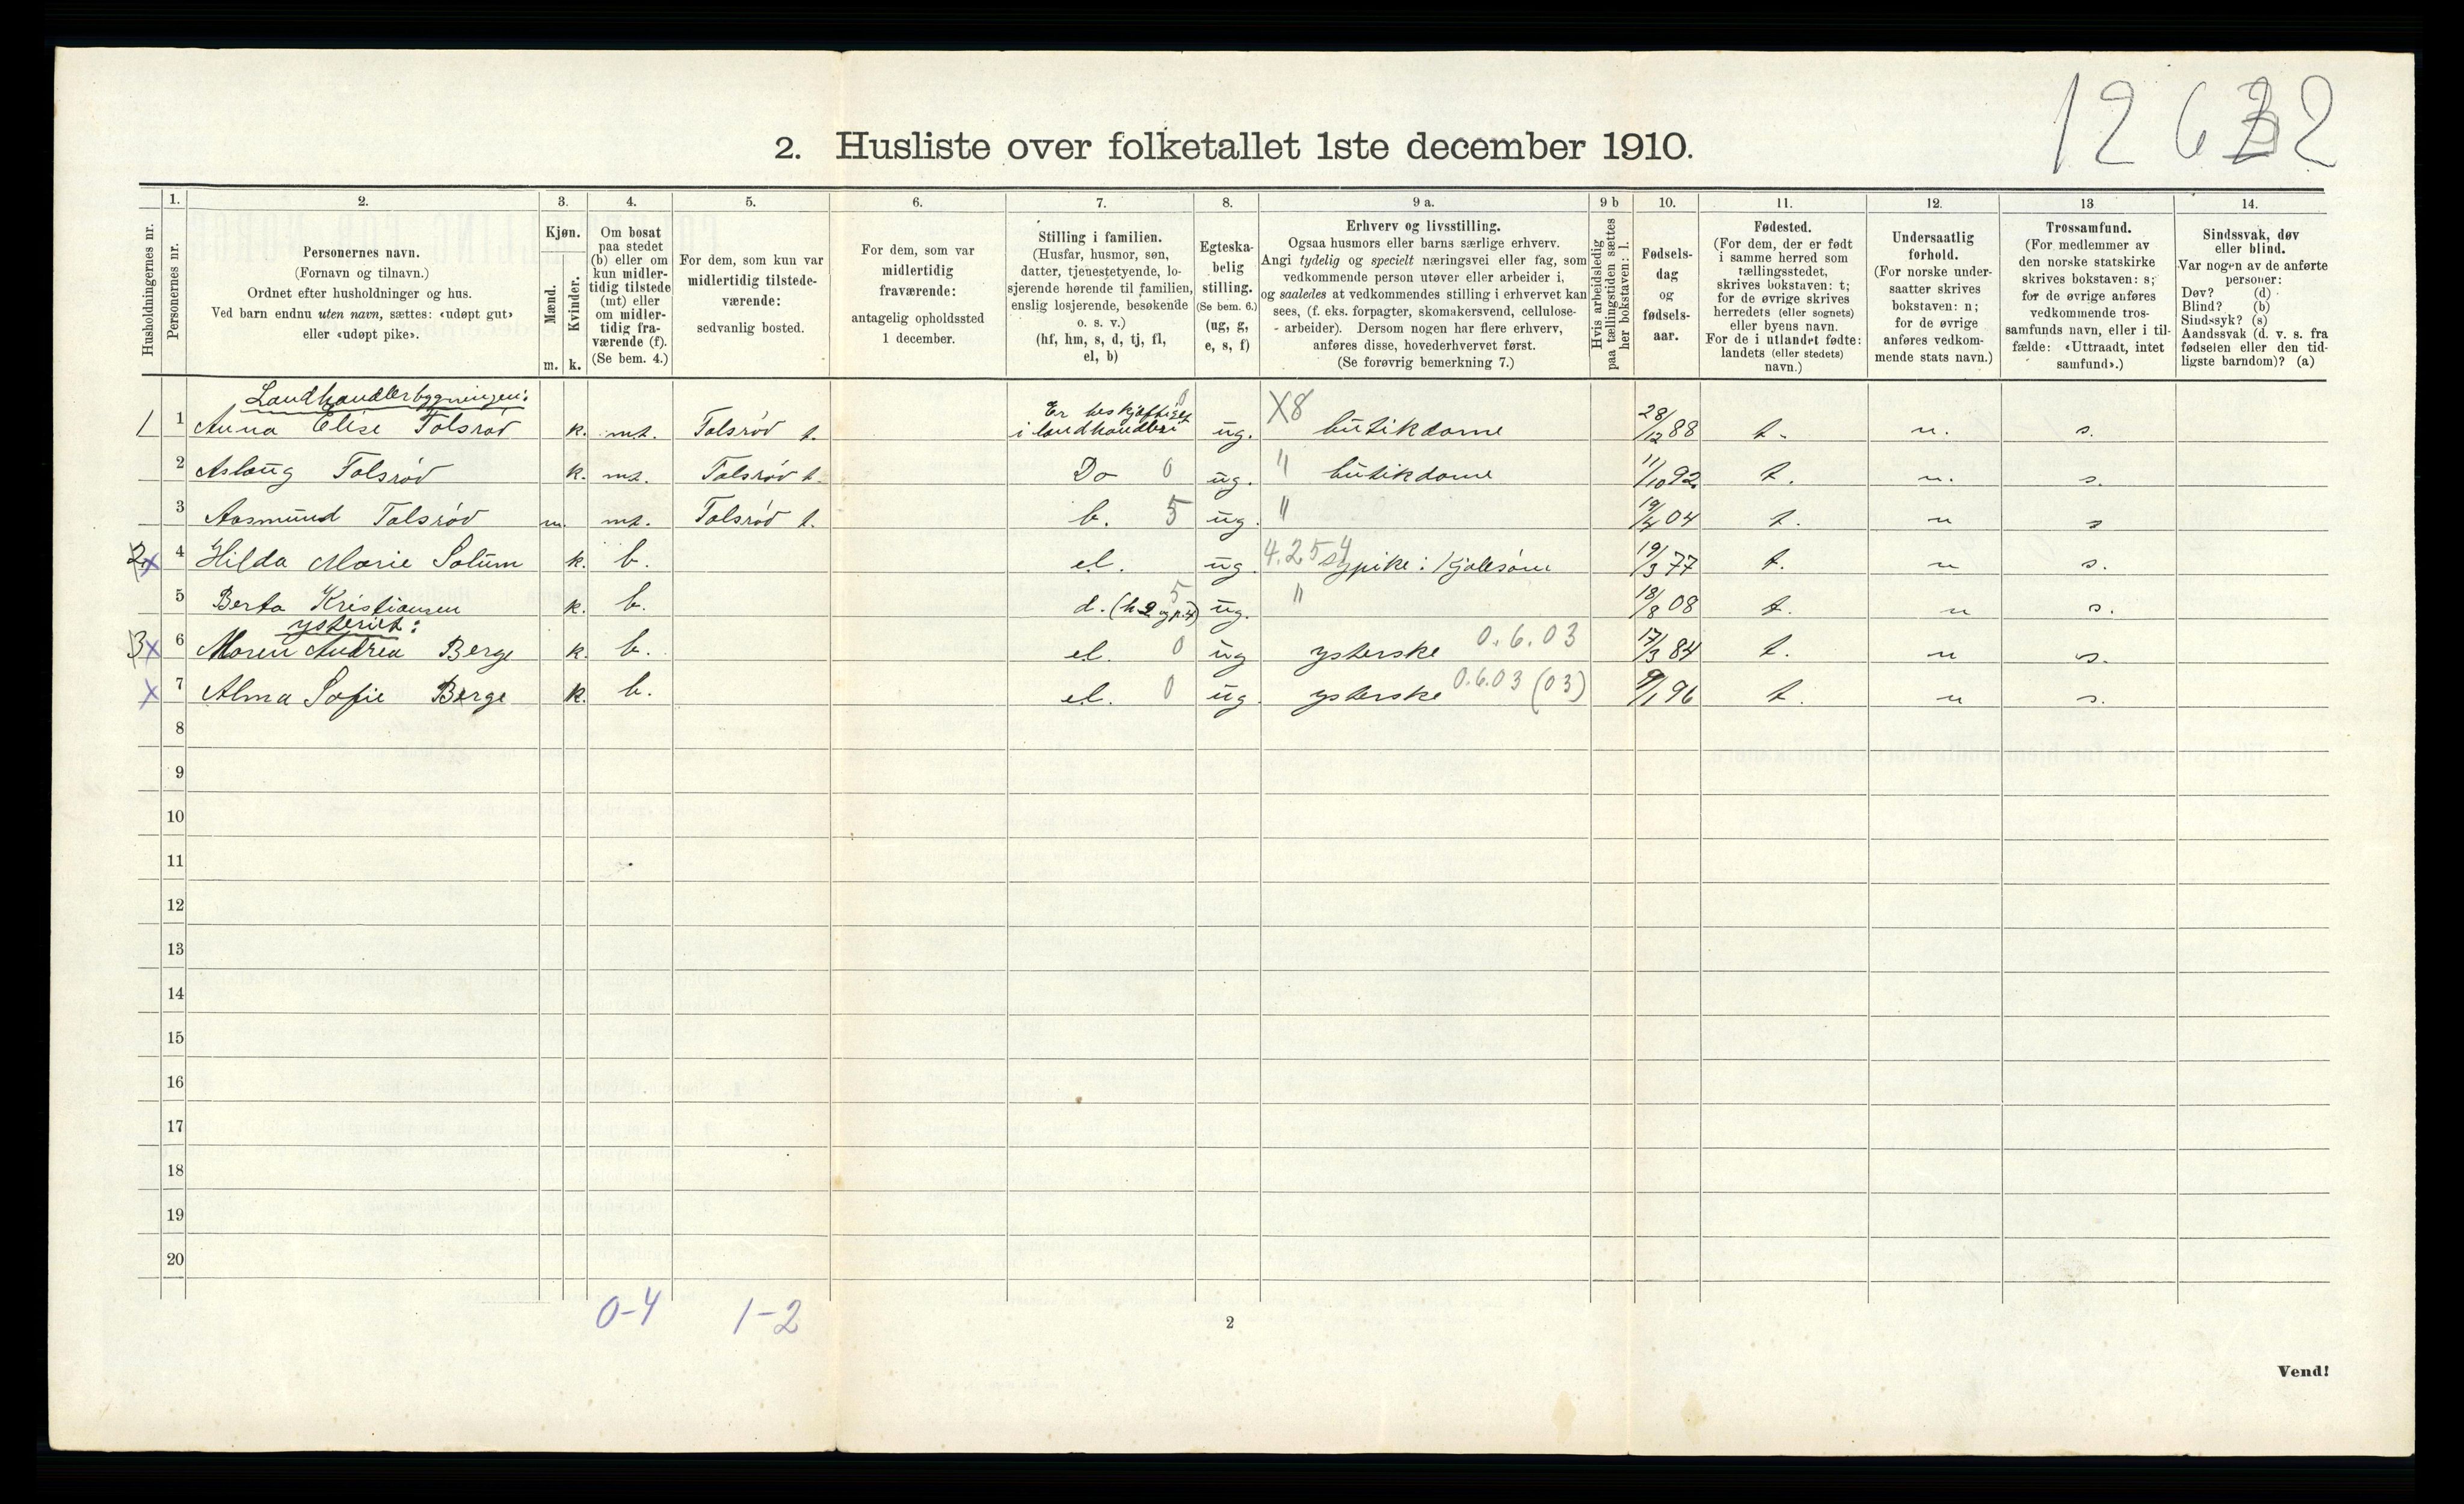 2. Husliste over folketallet 1ste december 1910.
Husholdningernes nr.
1.
Personernes nr.
2.
Personernes navn.
(Fornavn og tilnavn.)
Ordnet efter husholdninger og hus.
Ved barn endnu uten navn, sættes: «udøpt gut»
eller «udøpt pike».
3.
Kjøn.
Mænd.
Kvinder.
m. k.
4.
Om bosat
paa stedet
(b) eller om
kun midler-
tidig tilstede
(mt) eller
om midler-
tidig fra-
værende (f).
(Se bem. 4.)
5.
For dem, som kun var
midlertidig tilstede-
værende:
sedvanlig bosted.
6.
For dem, som var
midlertidig
fraværende:
antagelig opholdssted
1 december.
7.
Stilling i familien.
(Husfar, husmor, søn,
datter, tjenestetyende, lo-
sjerende hørende til familien,
enslig losjerende, besøkende
o. s. v.)
(hf, hm, s, d, tj, fl,
el, b)
8.
Egteska-
belig
stilling.
(Se bem. 6.)
(ug, g,
e, s, f)
9 a.
Erhverv og livsstilling.
Ogsaa husmors eller barns særlige erhverv.
Angi tydelig og specielt næringsvei eller fag, som
vedkommende person utøver eller arbeider i,
og saaledes at vedkommendes stilling i erhvervet kan
sees, (f. eks. forpagter, skomakersvend, cellulose-
arbeider). Dersom nogen har flere erhverv,
anføres disse, hovederhvervet først.
(Se forøvrig bemerkning 7.)
9 b
Hvis arbeidsledig
paa tællingstiden sættes
her bokstaven: l.
10.
Fødsels-
dag
og
fødsels-
aar.
11.
Fødested.
(For dem, der er født
i samme herred som
tællingsstedet,
skrives bokstaven: t;
for de øvrige skrives
herredets (eller sognets)
eller byens navn.
For de i utlandet fødte:
landets (eller stedets)
navn.)
12.
Undersaatlig
forhold.
(For norske under-
saatter skrives
bokstaven: n;
for de øvrige
anføres vedkom-
mende stats navn.)
13
Trossamfund.
(For medlemmer av
den norske statskirke
skrives bokstaven: s;
for de øvrige anføres
vedkommende tros-
samfunds navn, eller i til-
fælde: «Uttraadt, intet
samfund».)
14.
Sindssvak, døv
eller blind.
Var nogen av de anførte
personer:
Døv? (d)
Blind? (b)
Sindssyk? (s)
Aandssvak (d. v. s. fra
fødselen eller den tid-
ligste barndom)? (a)
Landhandlerbygningen:
1 1 Anna Elise Tolsrød k. mt. Tolsrød t. Er beskjæftiget i landhandleri 0 ug. X8 butikdame 28/12 88 t. n. s.
2 Aslaug Tolsrød k. mt. Tolsrød t. Do 0 ug. " butikdame 11/10 92 t. n. s.
3 Aasmund Tolsrød m. mt. Tolsrød t. b. 5 ug. " 19/4 04 t. n s
2 x 4 Hilda Marie Solum k. b. el. ug. 4.254 sypike: kjolesøm 19/3 77 t. n s.
5 Berta Kristiansen k. b. d. (h 2 og p. 4) 5 ug. " 18/8 08 t. n s.
ysteriet:
3 x 6 Maren Andrea Berge k. b. el. 0 ug ysterske 0.6.03 17/3 84 t. n s.
x 7 Alma Sofie Berge k. b. el. 0 ug. ysterske 0.6.03 (03) 9/1 96 t. n s.
8
9
10
11
12
13
14
15
16
17
18
19
20
0-4 1-2
2
Vend!